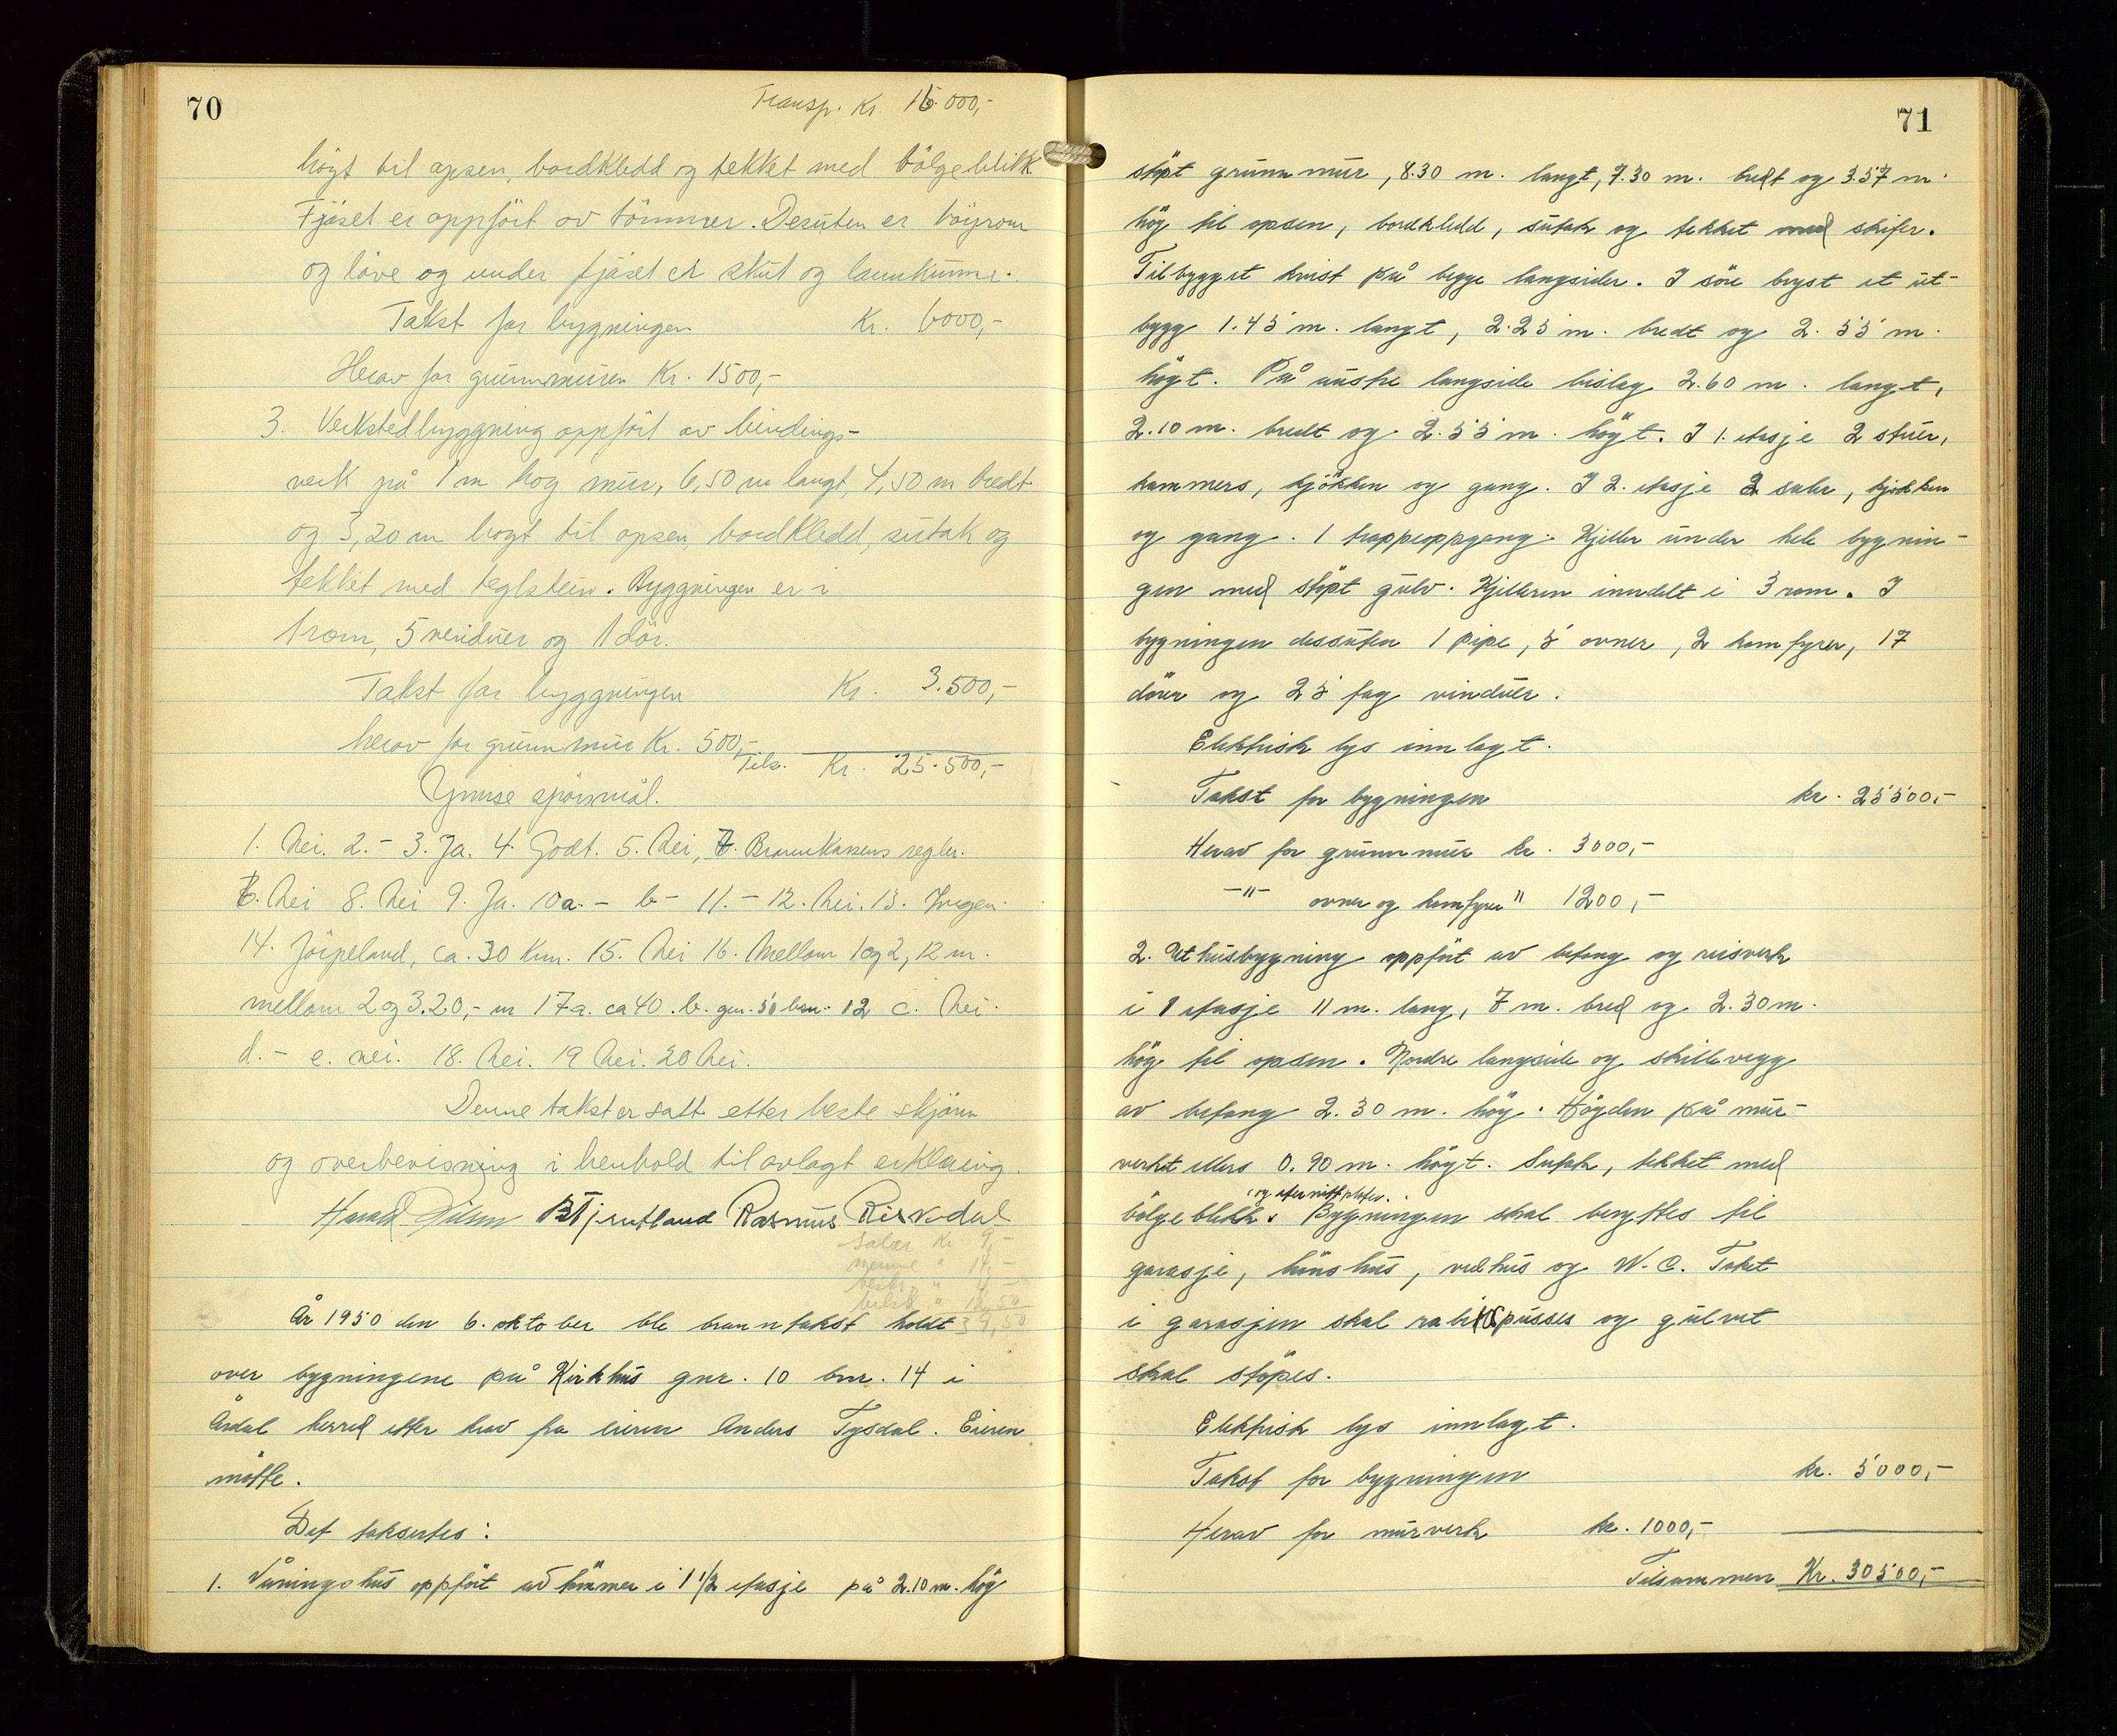 70
Transp. Kr. 16.000,-
högt til opsen, bordkledd og tekket med bölgeblikk.
Fjöset er oppfört av tömmer. Desuten er höyrom
og löve og under fjöset er skut og lannkumme.
Takst for bygningen Kr. 6000,-
Herav for grunnmuren Kr. 1500,-
3. Verkstedbyggning oppfört av bindings-
verk på 1 m hog mur, 6,50 m langt, 4,50 m bredt
og 3,20 m hogt til opsen, bordkledd, sutak og
tekket med teglstein. Byggningen er i
1 rom, 5 vinduer og 1 dör.
Takst for byggningen Kr. 3.500,-
herav for grunnmur Kr. 500,-
Tils. Kr. 25.500,-
Ymse spörsmål.
1. Nei. 2. - 3. Ja. 4. Godt. 5. Nei, 7. Brannkassens regler.
6. Nei 8. Nei 9. Ja. 10a. - b - 11. - 12. Nei. 13. Ingen.
14. Jörpeland, ca. 30 km. 15. Nei 16. Mellom 1 og 2, 12 m.
mellom 2 og 3. 20,- m 17a. ca 40. b. gnr. 50 bnr. 12 c. Nei.
d. - e. nei. 18. Nei. 19 Nei. 20 Nei.
Denne takst er satt etter beste skjönn
og overbevisning i henhold til avlagt erklæring.
Harald Nilsen B Tjentland Rasmus Riskedal
Salær Kr. 9,-
" 14,-
"
" 12,50
39,50
År 1950 den 6. oktober ble branntakst holdt
over bygningene på Kirkhus gnr. 10 bnr. 14 i
Årdal herred etter krav fra eieren Anders Tysdal. Eieren
mötte.
Det taksertes:
1. Våningshus oppfört av tömmer i 1 1/2 etasje på 2.10 m. hög
71
stöpt grunnmur, 8.30 m. langt, 7.30 m. bredt og 3.57 m.
hög til opsen, bordkledd, sutak og tekket med skifer.
Tilbygget kvist på begge langsider. I söre bryst et ut-
bygg 1.45 m. langt, 2.25 m. bredt og 2.55 m.
högt. På austre langside bislag 2.60 m. langt,
2.10 m. bredt og 2.55 m. högt. I 1. etasje 2 stuer,
kammers, kjökken og gang. I 2. etasje 2 saler, kjökken
og gang. 1 trappeoppgang. Kjeller under hele bygnin-
gen med stöpt gulv. Kjelleren inndelt i 3 rom. I
bygningen dessuten 1 pipe, 5 ovner, 2 komfyrer, 17
dörer og 25 fag vinduer.
Elektrisk lys innlagt.
Takst for bygningen kr. 25500,-
Herav for grunnmur kr. 3000,-
-"- ovner og komfyrer " 1200,-
2. Uthusbygning oppfört av betong og reisverk
i 1 etasje 11 m. lang, 7 m. bred og 2.30 m.
hög til opsen. Nordre langside og skillevegg
av betong 2.30 m. hög. Högden på mur-
verket ellers 0.90 m. högt. Sutak, tekket med
og eternittplater.
bölgeblikk. Bygningen skal benyttes til
garasje, hönshus, vedhus og W.C. Taket
i garasjen skal rabitspusses og gulvet
skal stöpes.
Elektrisk lys innlagt.
Takst for bygningen kr. 5000,-
Herav for murverk kr. 1000,-
Tilsammen Kr. 30500,-